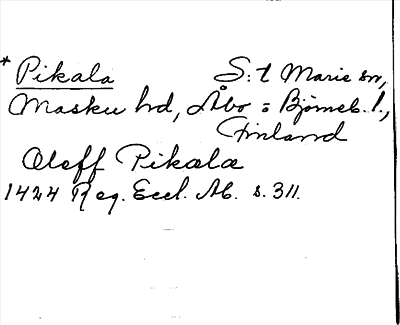 * Pikala S:t Marie sn,
Masku hd, Åbo o Björneb. l.,
Finland
Oleff Pikala
1424 Reg. Eccl. Ab. s. 311.